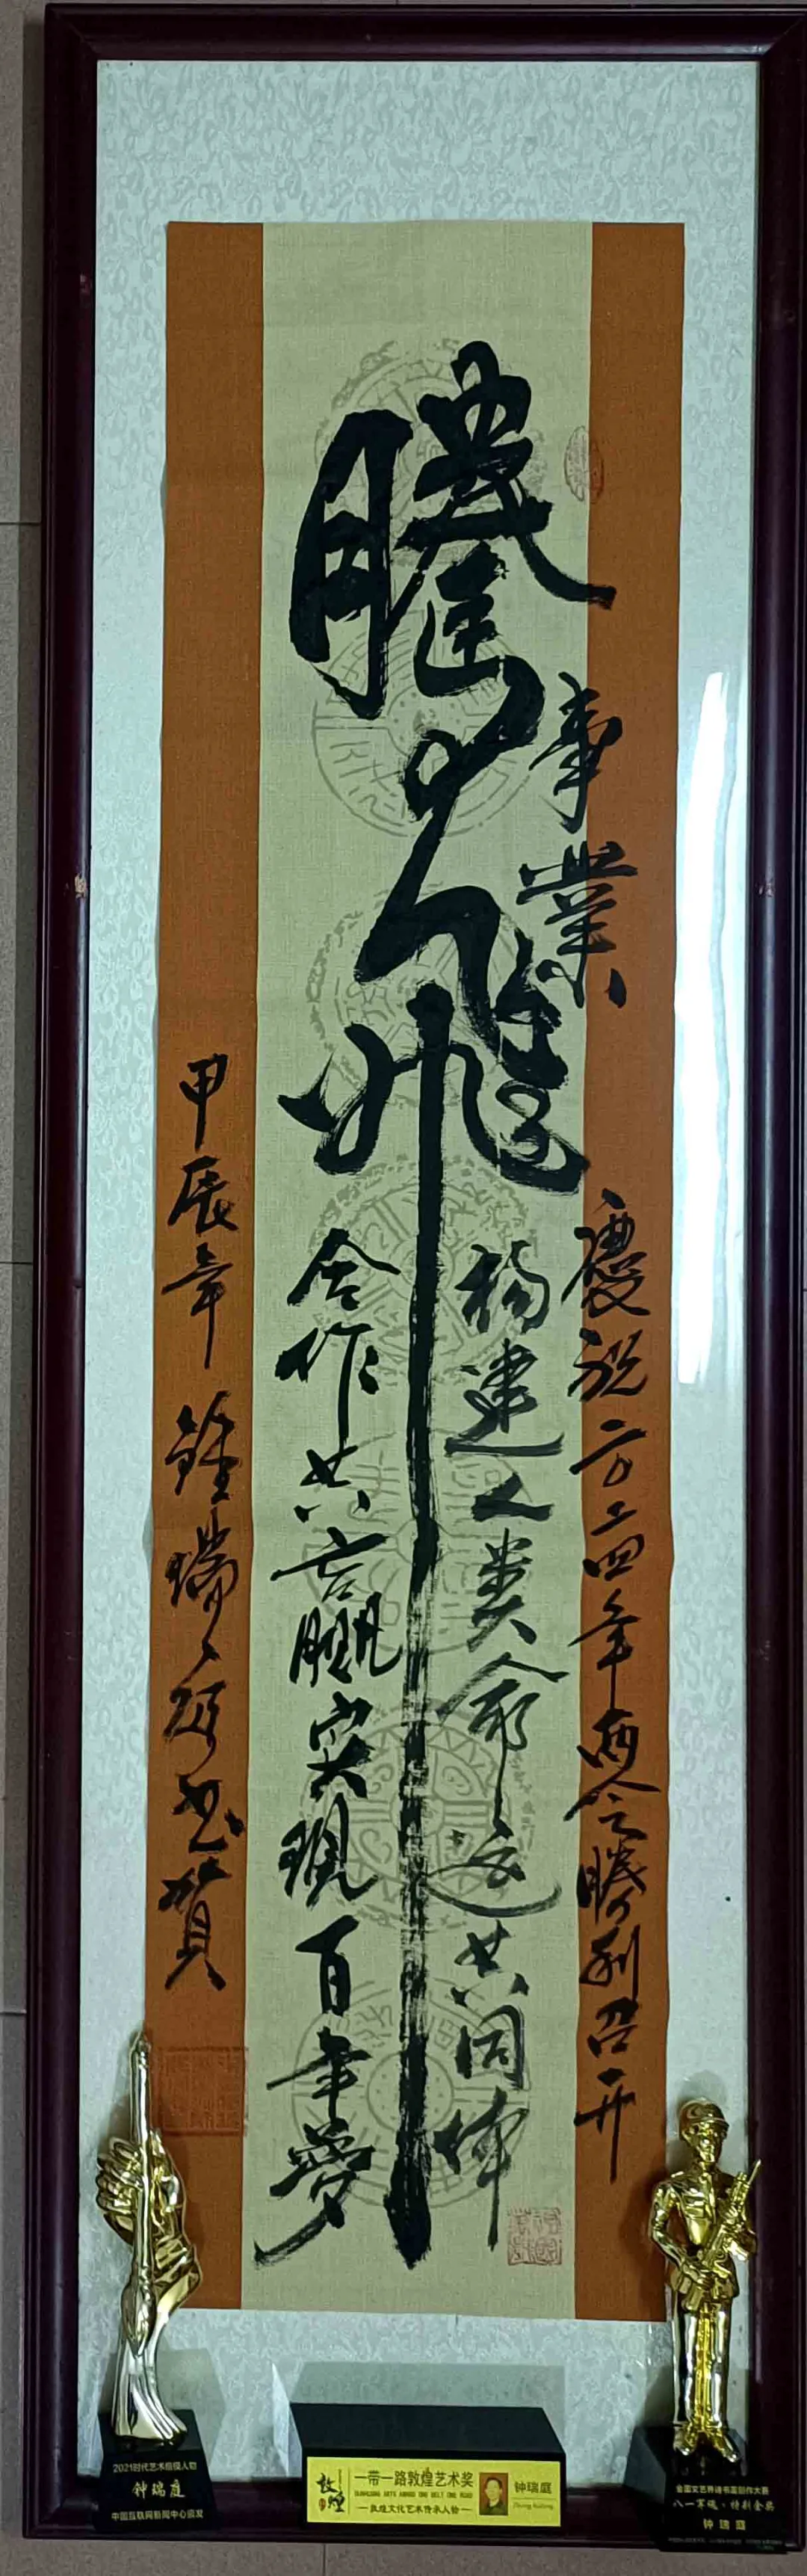 事業
騰飛
慶祝二〇二四年両会勝利召开
构建人类命运共同体
合作共赢实现百年夢
甲辰年 鍾瑞廷书賀
2021时代艺术楷模人物
钟瑞庭
中国互联网新闻中心颁发
敦煌
一带一路敦煌艺术奖
DUNHUANG ARTS AWARD ONE BELT ONE ROAD
敦煌文化艺术传承人物
钟瑞庭
Zhong Ruiting
全国文艺界诗书画创作大赛
八一军魂·特别金奖
钟瑞庭